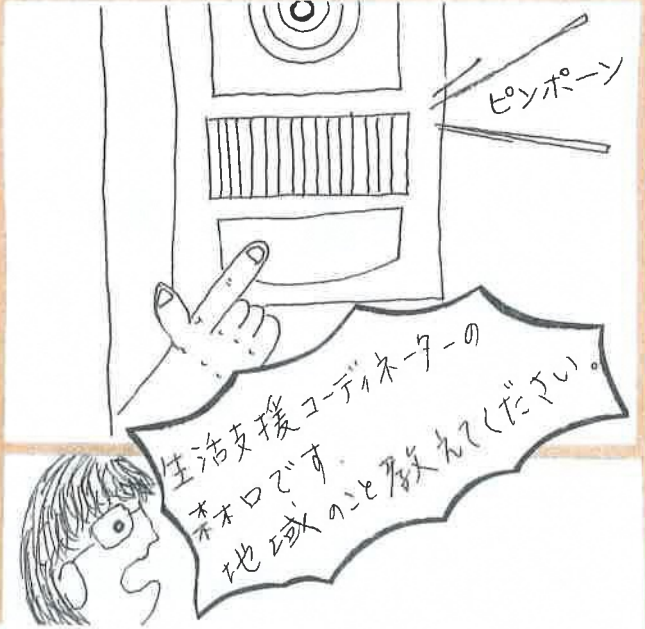 ピンポーン
生活支援コーディネーターの
森口です.
地域のこと教えてください。